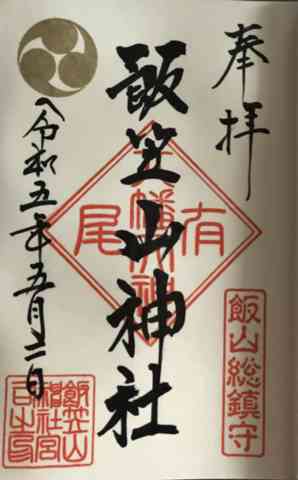 奉拝
飯山総鎮守
飯笠山神社
有尾
令和五年五月
飯笠山
神社宮
司之印